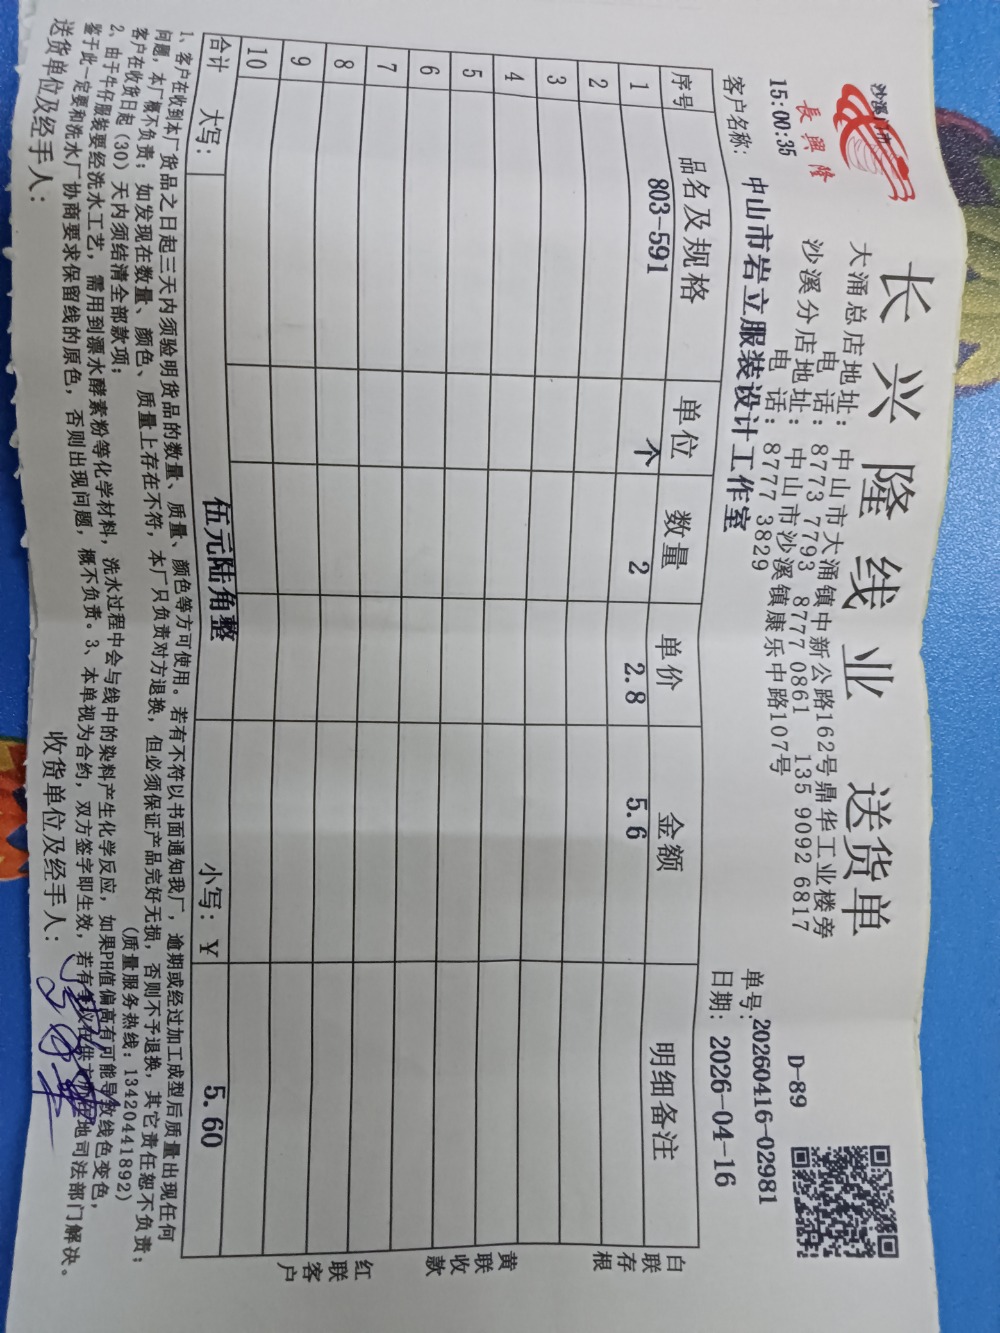 沙溪门市
長興隆
15:00:35
长兴隆线业 送货单
大涌总店地址: 中山市大涌镇中新公路162号鼎华工业楼旁
电 话: 8773 7793 8777 0861 135 9092 6817
沙溪分店地址: 中山市沙溪镇康乐中路107号
电 话: 8777 3829
D-89
单号: 20260416-02981
客户名称: 中山市岩立服装设计工作室
日期: 2026-04-16
序号 品名及规格 单位 数量 单价 金额 明细备注
1 803-591 个 2 2.8 5.6
2
3
4
5
6
7
8
9
10
合计 大写: 伍元陆角整 小写: ¥ 5.60
白联存根
黄联收款
红联客户
1、客户在收到本厂货品之日起三天内须验明货品的数量、质量、颜色等方可使用。若有不符以书面通知我厂，逾期或经过加工成型后质量出现任何
问题，本厂概不负责；如发现在数量、颜色、质量上存在不符，本厂只负责对方退换，但必须保证产品完好无损，否则不予退换，其它责任恕不负责；
客户在收货日起（30）天内须结清全部款项； (质量服务热线: 13420441892)
2、由于牛仔服装要经洗水工艺，需用到漂水酵素粉等化学材料，洗水过程中会与线中的染料产生化学反应，如果PH值偏高有可能导致线色变色，
鉴于此一定要和洗水厂协商要求保留线的原色，否则出现问题，概不负责。3、本单视为合约，双方签字即生效，若有争议在供方所在地司法部门解决。
送货单位及经手人: 收货单位及经手人: